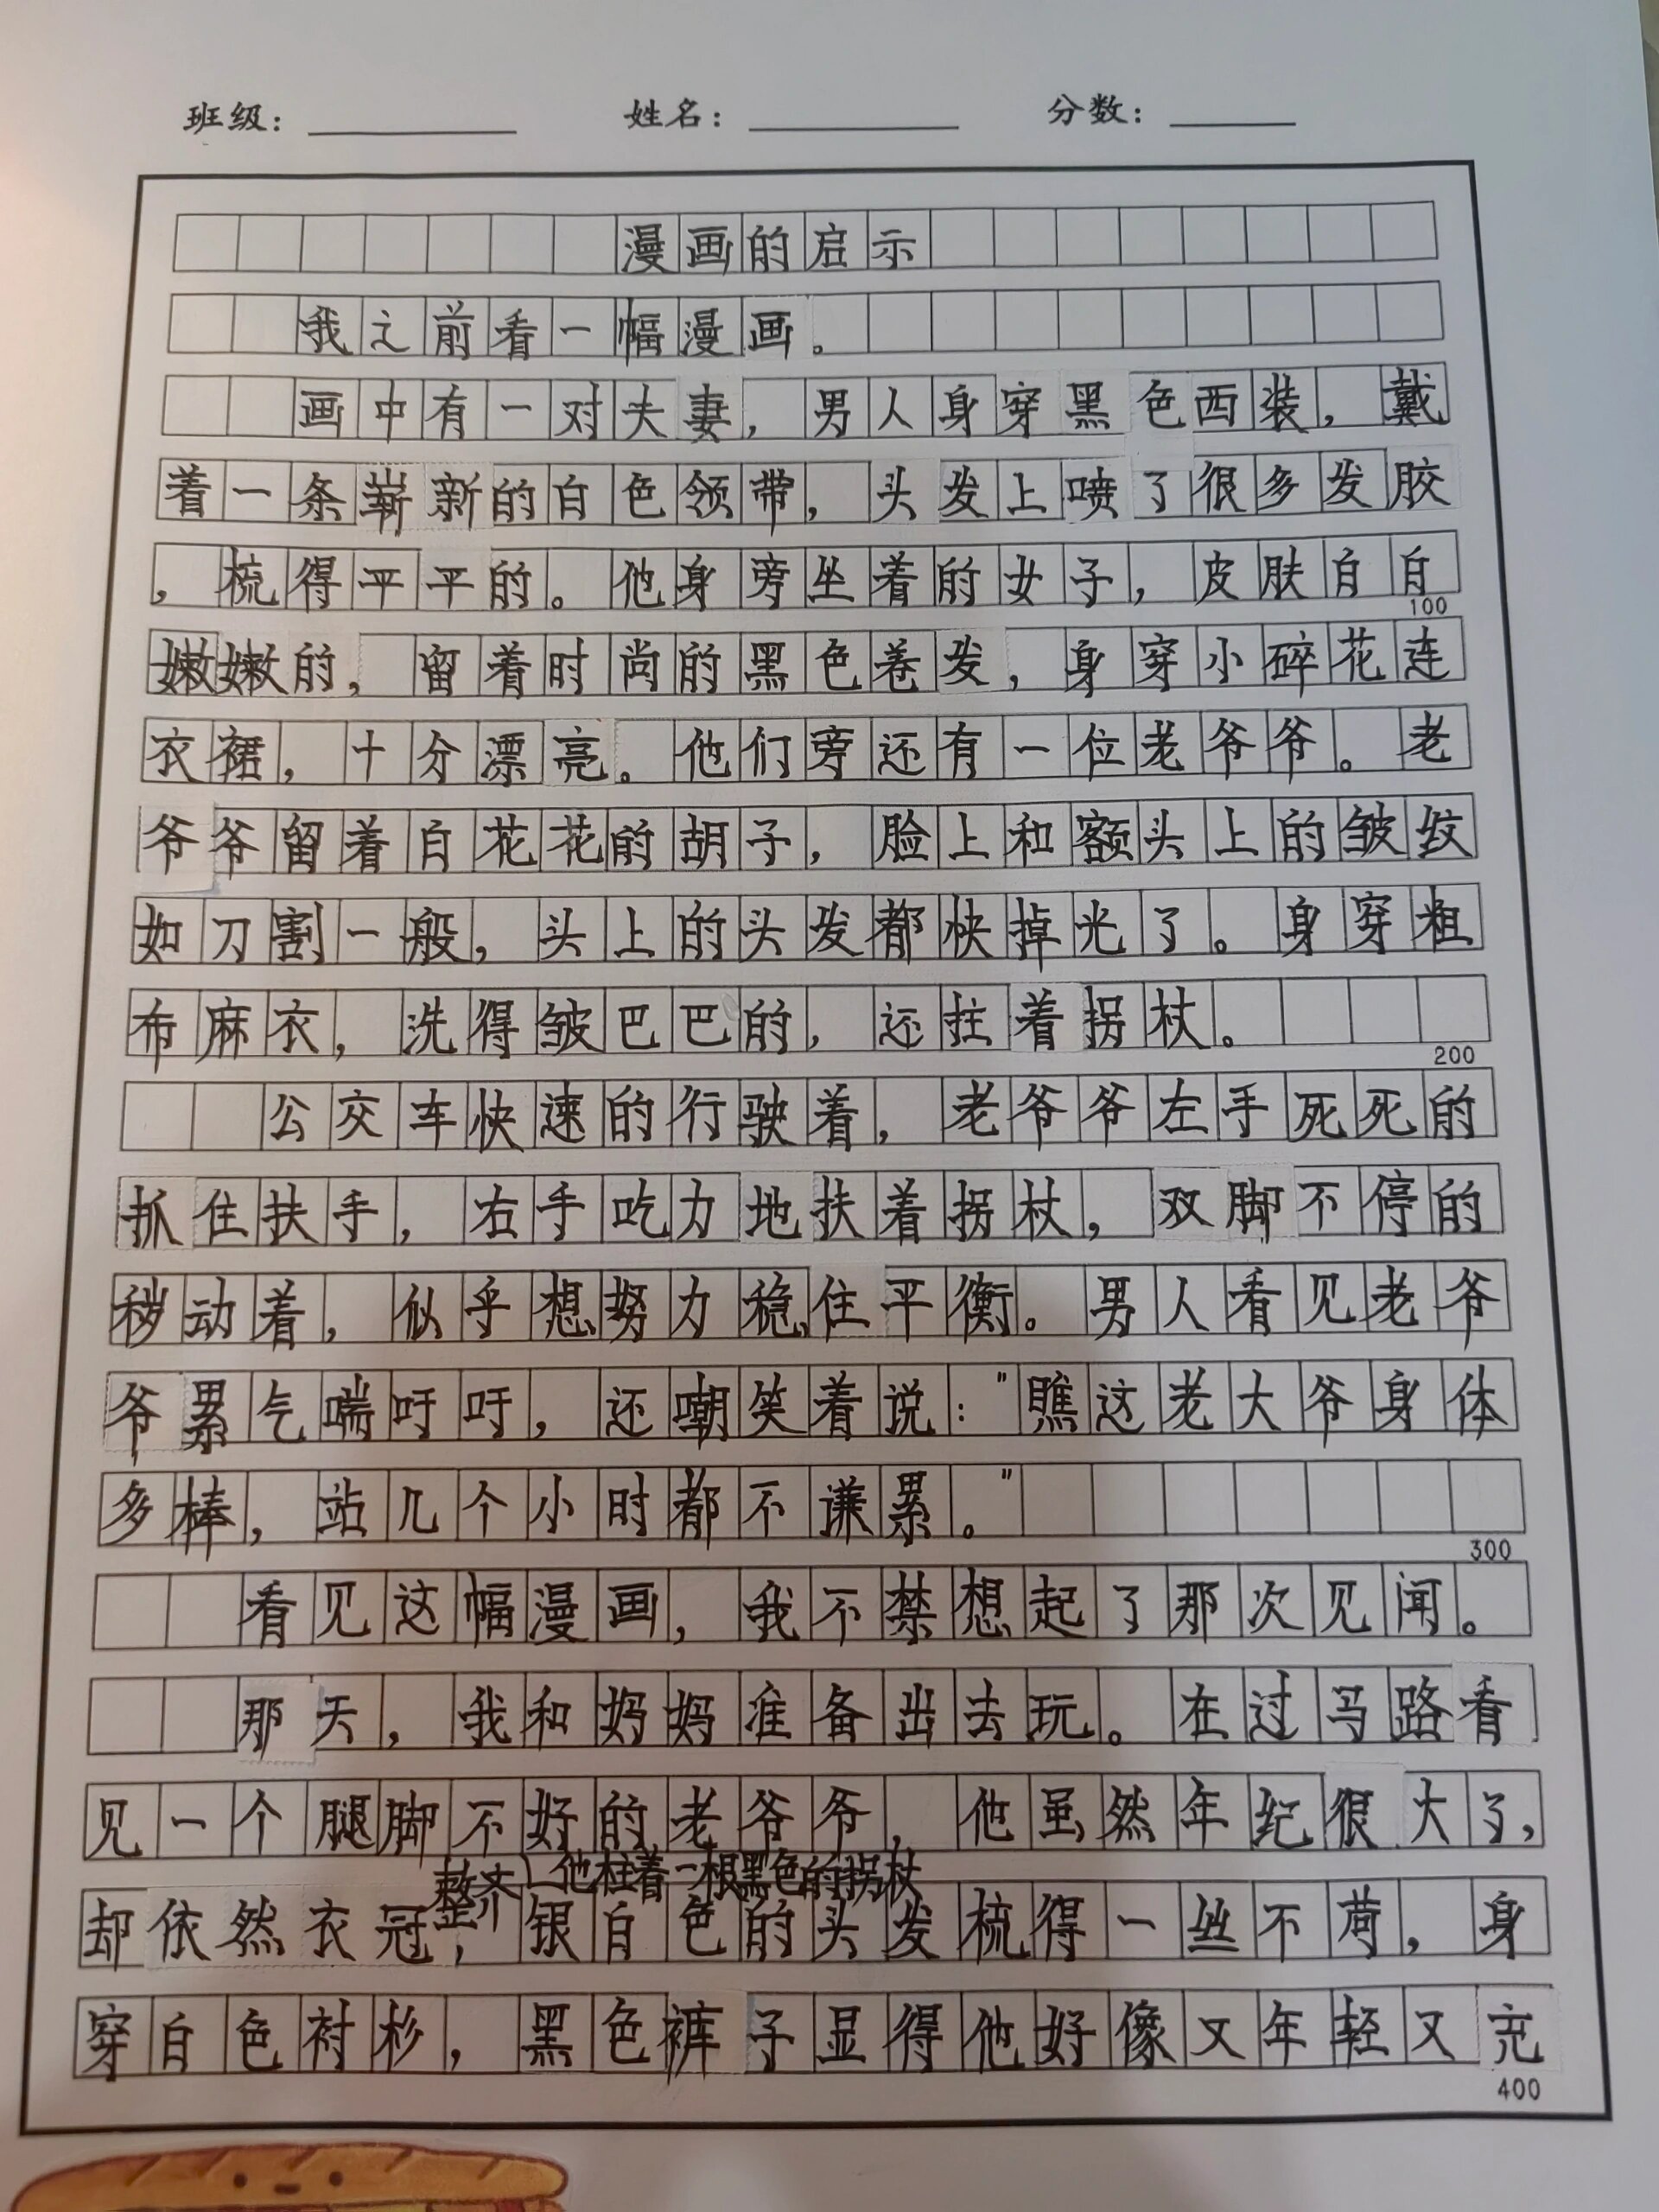 班级：　姓名：　分数：
漫画的启示
我之前看一幅漫画。
画中有一对夫妻，男人身穿黑色西装，戴
着一条崭新的白色领带，头发上喷了很多发胶
，梳得平平的。他身旁坐着的女子，皮肤白白
100
嫩嫩的，留着时尚的黑色卷发，身穿小碎花连
衣裙，十分漂亮。他们旁还有一位老爷爷。老
爷爷留着白花花的胡子，脸上和额头上的皱纹
如刀割一般，头上的头发都快掉光了。身穿粗
布麻衣，洗得皱巴巴的，还拄着拐杖。
200
公交车快速的行驶着，老爷爷左手死死的
抓住扶手，右手吃力地扶着拐杖，双脚不停的
移动着，似乎想努力稳住平衡。男人看见老爷
爷累气喘吁吁，还嘲笑着说："瞧这老大爷身体
多棒，站几个小时都不谦累。"
300
看见这幅漫画，我不禁想起了那次见闻。
那天，我和妈妈准备出去玩。在过马路看
见一个腿脚不好的老爷爷，他虽然年纪很大了，
整齐 他柱着一根黑色的拐杖
却依然衣冠，银白色的头发梳得一丝不苟，身
穿白色衬衫，黑色裤子显得他好像又年轻又充
400